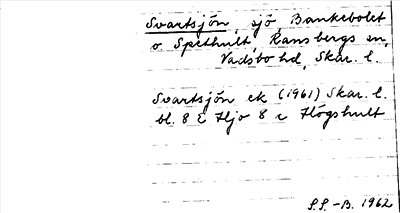 Svartsjön, sjö, Bankebolet
o Spethult, Ransbergs sn,
Vadsbo hd, Skar. l.
Svartsjön ek (1961) Skar. l.
bl. 8 E Hjo 8 c Högshult
P.P.-B. 1962